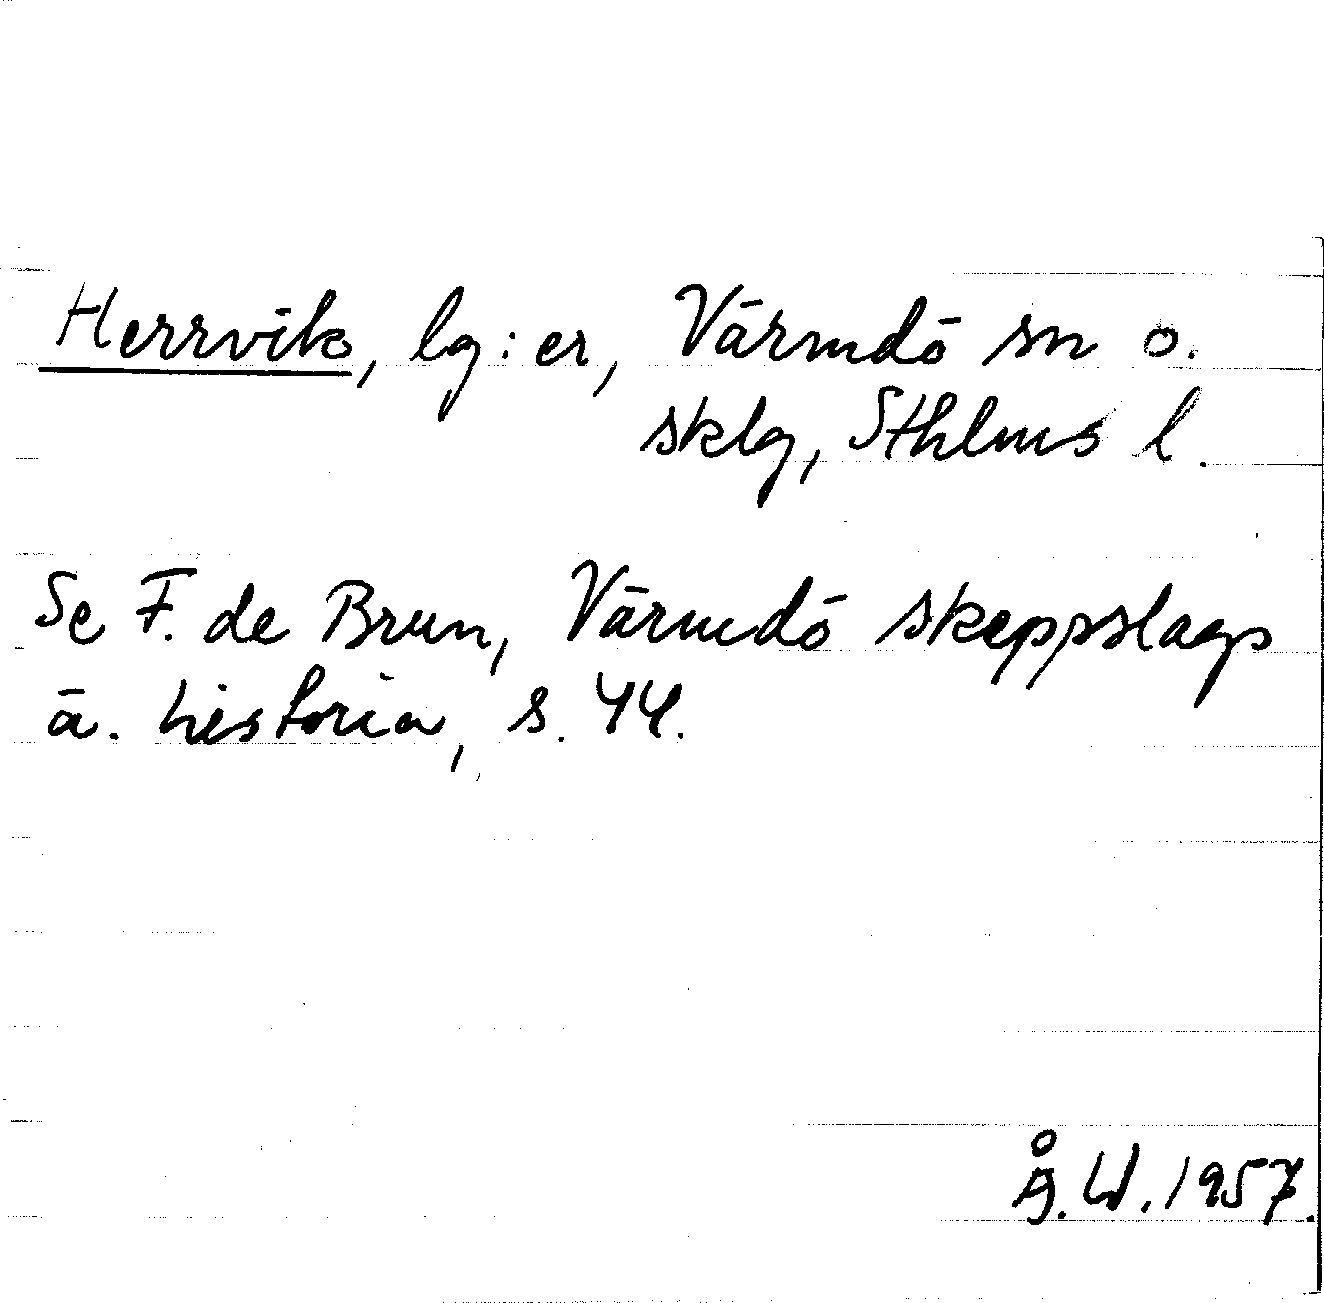 Herrvik, lg:er, Värmdö sn o.
sklg, Sthlms l.
Se F. de Brun, Värmdö skeppslags
ä. historia, s. 44.
Å.W. 1957.